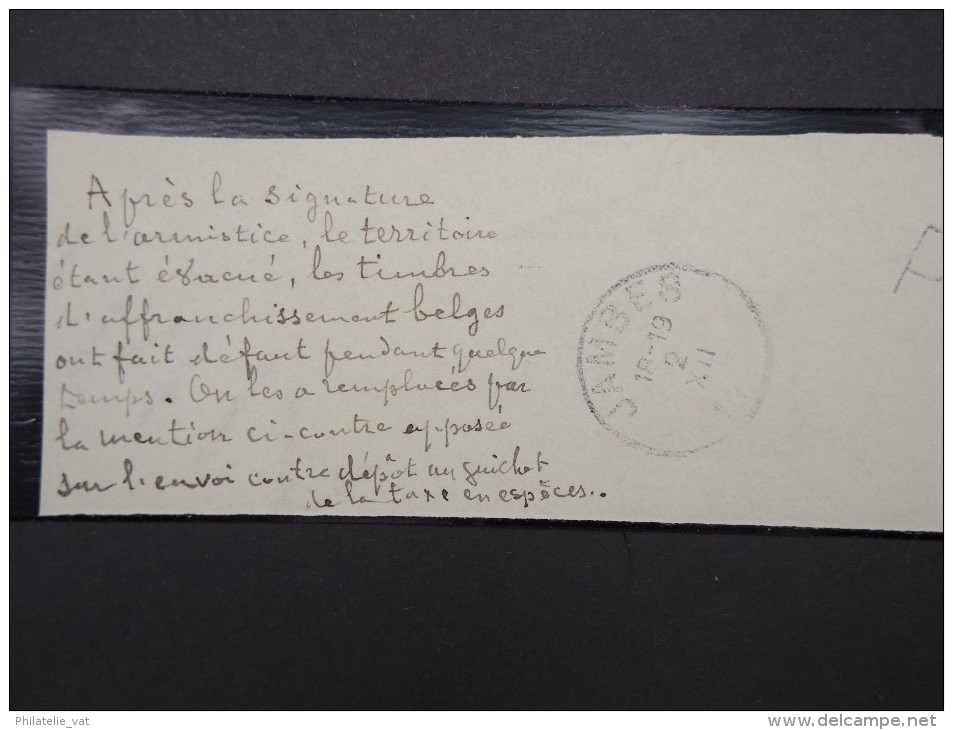 Après la signature
de l'armistice, le territoire
étant évacué, les timbres
d'affranchissement belges
ont fait défaut pendant quelque
temps. On les a remplacés par
la mention ci-contre apposée
sur l'envoi contre dépôt au guichet
de la taxe en espèces..
JAMBES
18-19
2
XII
P
Philatelie_vat
www.delcampe.net